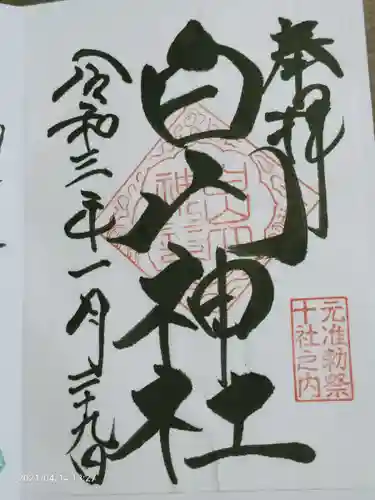 奉拝
白山神社
元准勅祭
十社之内
令和三年一月二十九日
2021.04.14 13:27